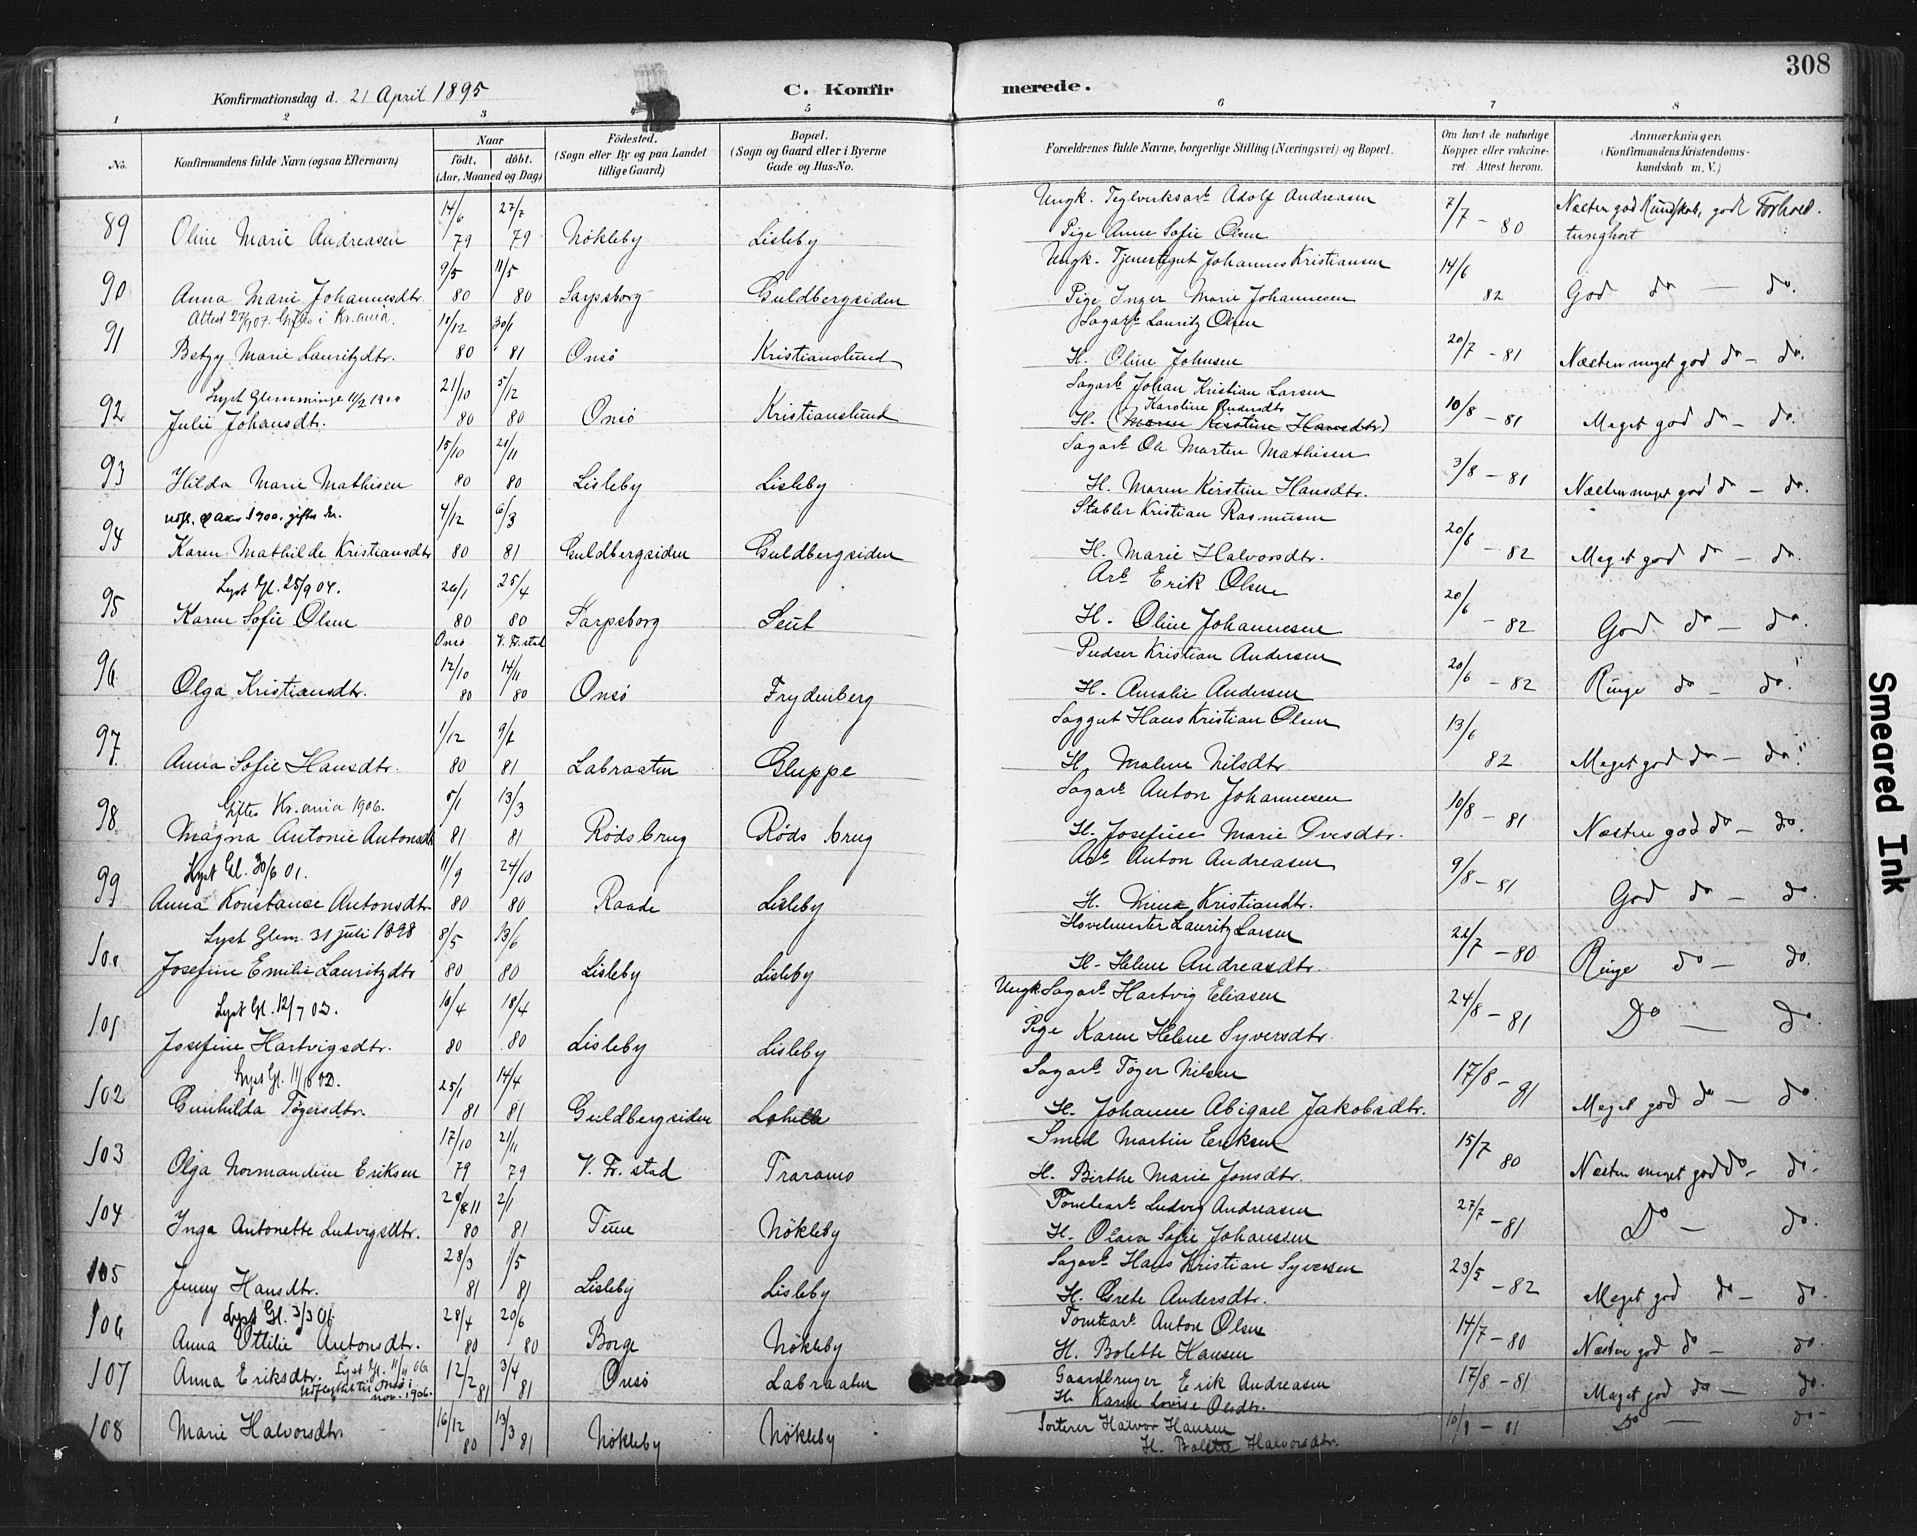 308
Konfirmationsdag d. 21 April 1895
C. Konfirmerede.
1 2 3 4 5 6 7 8
No.
Konfirmandens fulde Navn (ogsaa Efternavn)
Naar
födt. döbt.
(Aar, Maaned og Dag)
Födested.
(Sogn eller By og paa Landet
tillige Gaard)
Bopæl.
(Sogn og Gaard eller i Byerne
Gade og Hus-No.
Forældrenes fulde Navne, borgerlige Stilling (Næringsvei) og Bopæl.
Om havt de naturlige
Kopper eller vakcine-
ret. Attest herom.
Anmærkninger.
(Konfirmandens Kristendoms-
kundskab m. V.)
Ungk. Teglverksarb. Adolf Andreasen
89 Oline Marie Andreasen 14/6 79 27/7 79 Nökleby Lisleby Pige Anne Sofie Olsen 7/7 - 80 Næsten god Kundskab, godt Forhold. tunghørt
Ungk. Tjenestegut Johannes Kristiansen
90 Anna Marie Johannesdtr. 9/5 80 11/5 80 Sarpsborg Guldbergsiden Pige Inger Marie Johannesen 14/6 82 God do - do.
Attest 27/9 07. Giftes i Kr.ania.
Sagarb. Lauritz Olsen
91 Betzy Marie Lauritzdtr. 10/12 80 30/1 81 Onsö Kristianslund H. Oline Johnsen 20/7 - 81 Næsten meget god do - do.
Lyst Glemminge 11/2 1900
Sagarb. Johan Kristian Larsen
Karoline Andersdtr
92 Julie Johansdtr. 21/10 80 5/12 80 Onsö Kristianslund H. (Maren Kirstine Hansdtr) 10/8 - 81 Meget god do - do.
Sagarb. Ole Martin Mathisen
93 Hilda Marie Mathisen 15/10 80 21/11 80 Lisleby Lisleby H. Maren Kirstine Hansdtr. 3/8 - 81 Næsten meget god do - do.
Stabler Kristian Rasmusen
94 Karen Mathilde Kristiansdtr 4/12 80 6/3 81 Guldbergsiden Guldbergsiden H. Marie Halvorsdtr. 20/6 - 82 Meget god do - do.
Lyst Gl. 25/9 04.
Arb. Erik Olsen
95 Karen Sofie Olsen 26/1 80 25/4 80 Sarpsborg Seut H. Oline Johannesen 20/6 - 82 God do - do.
Onsö V. Fr.stad
Pudser Kristian Andersen
96 Olga Kristiansdtr. 12/10 80 14/11 80 Onsö Frydenberg H. Amalie Andersen 20/6 - 82 Ringe do - do.
Saggut Hans Kristian Olsen
97 Anna Sofie Hansdtr. 1/12 80 81 Labraaten Gluppe H. Malene Nilsdtr 13/6 82 Meget god do - do.
Giftes Kr.ania 1906.
Sagarb. Anton Johannesen
98 Magna Antonie Antonsdtr 5/1 81 13/3 81 Røds brug Røds brug H. Josefine Marie Ovesdtr. 10/8 - 81 Næsten god do - do.
Lyst Gl. 30/6 01.
Arb. Anton Andreasen
99 Anna Konstanse Antonsdtr. 11/9 80 24/10 80 Raade Lisleby H. Mina Kristiandtr. 9/8 - 81 God do - do.
Lyst Glem. 31 juli 1898
Hovelmester Lauritz Larsen
100 Josefine Emilie Lauritzdtr 8/5 80 13/6 80 Lisleby Lisleby H. Helene Andreasdtr. 22/7 - 80 Ringe do - do.
Lyst Gl. 12/7 03.
Ungk. Sagarb. Hartvig Eliasen
101 Josefine Hartvigsdtr. 10/4 80 18/4 80 Lisleby Lisleby Pige Karen Helene Syversdtr. 24/8 - 81 Do - do.
Lyst Gl. 11/10 02.
Sagarb. Töger Nilsen
102 Gunhilda Tögersdtr. 25/1 81 14/4 81 Guldbergsiden H. Johanne Abigael Jakobsdtr. 17/8 - 81 Meget god do - do.
Smed Martin Eriksen
103 Olga Normandine Eriksen 17/10 79 21/11 79 V. Fr. stad Traramo H. Birthe Marie Jonsdtr. 15/7 80 Næsten meget god do - do.
Tomtearb. Ludvig Andreasen
104 Inga Antonette Ludvigsdtr. 28/11 80 2/1 81 Tune Nökleby H. Olava Sofie Johanssen 27/7 - 81 Do - do.
Sagarb. Hans Kristian Syversen
105 Jenny Hansdtr. 28/3 81 1/5 81 Lisleby Lisleby H. Grete Andersdtr. 23/5 - 82 Meget god do - do.
Lyst Gl. 3/3 01.
Tomtearb. Anton Olsen
106 Anna Ottilie Antonsdtr. 28/4 80 20/6 80 Borge Nökleby H. Bolette Hansen 14/7 - 80 Næsten god do - do
Gaardbruger Erik Andreasen
107 Anna Eriksdtr. Lyst Gl. 11/11 06 Udflyttet til Onsö i nov. 1906. 12/2 81 3/4 81 Onsö Labraaten H. Karen Lovise Olsdtr. 17/8 - 81 Meget god do - do.
Sorterer Halvor Hansen
108 Marie Halvorsdtr 16/12 80 13/3 81 Nökleby Nökleby H. Bolette Halvorsdtr. 10/8 - 81 Do - do
Smeared Ink